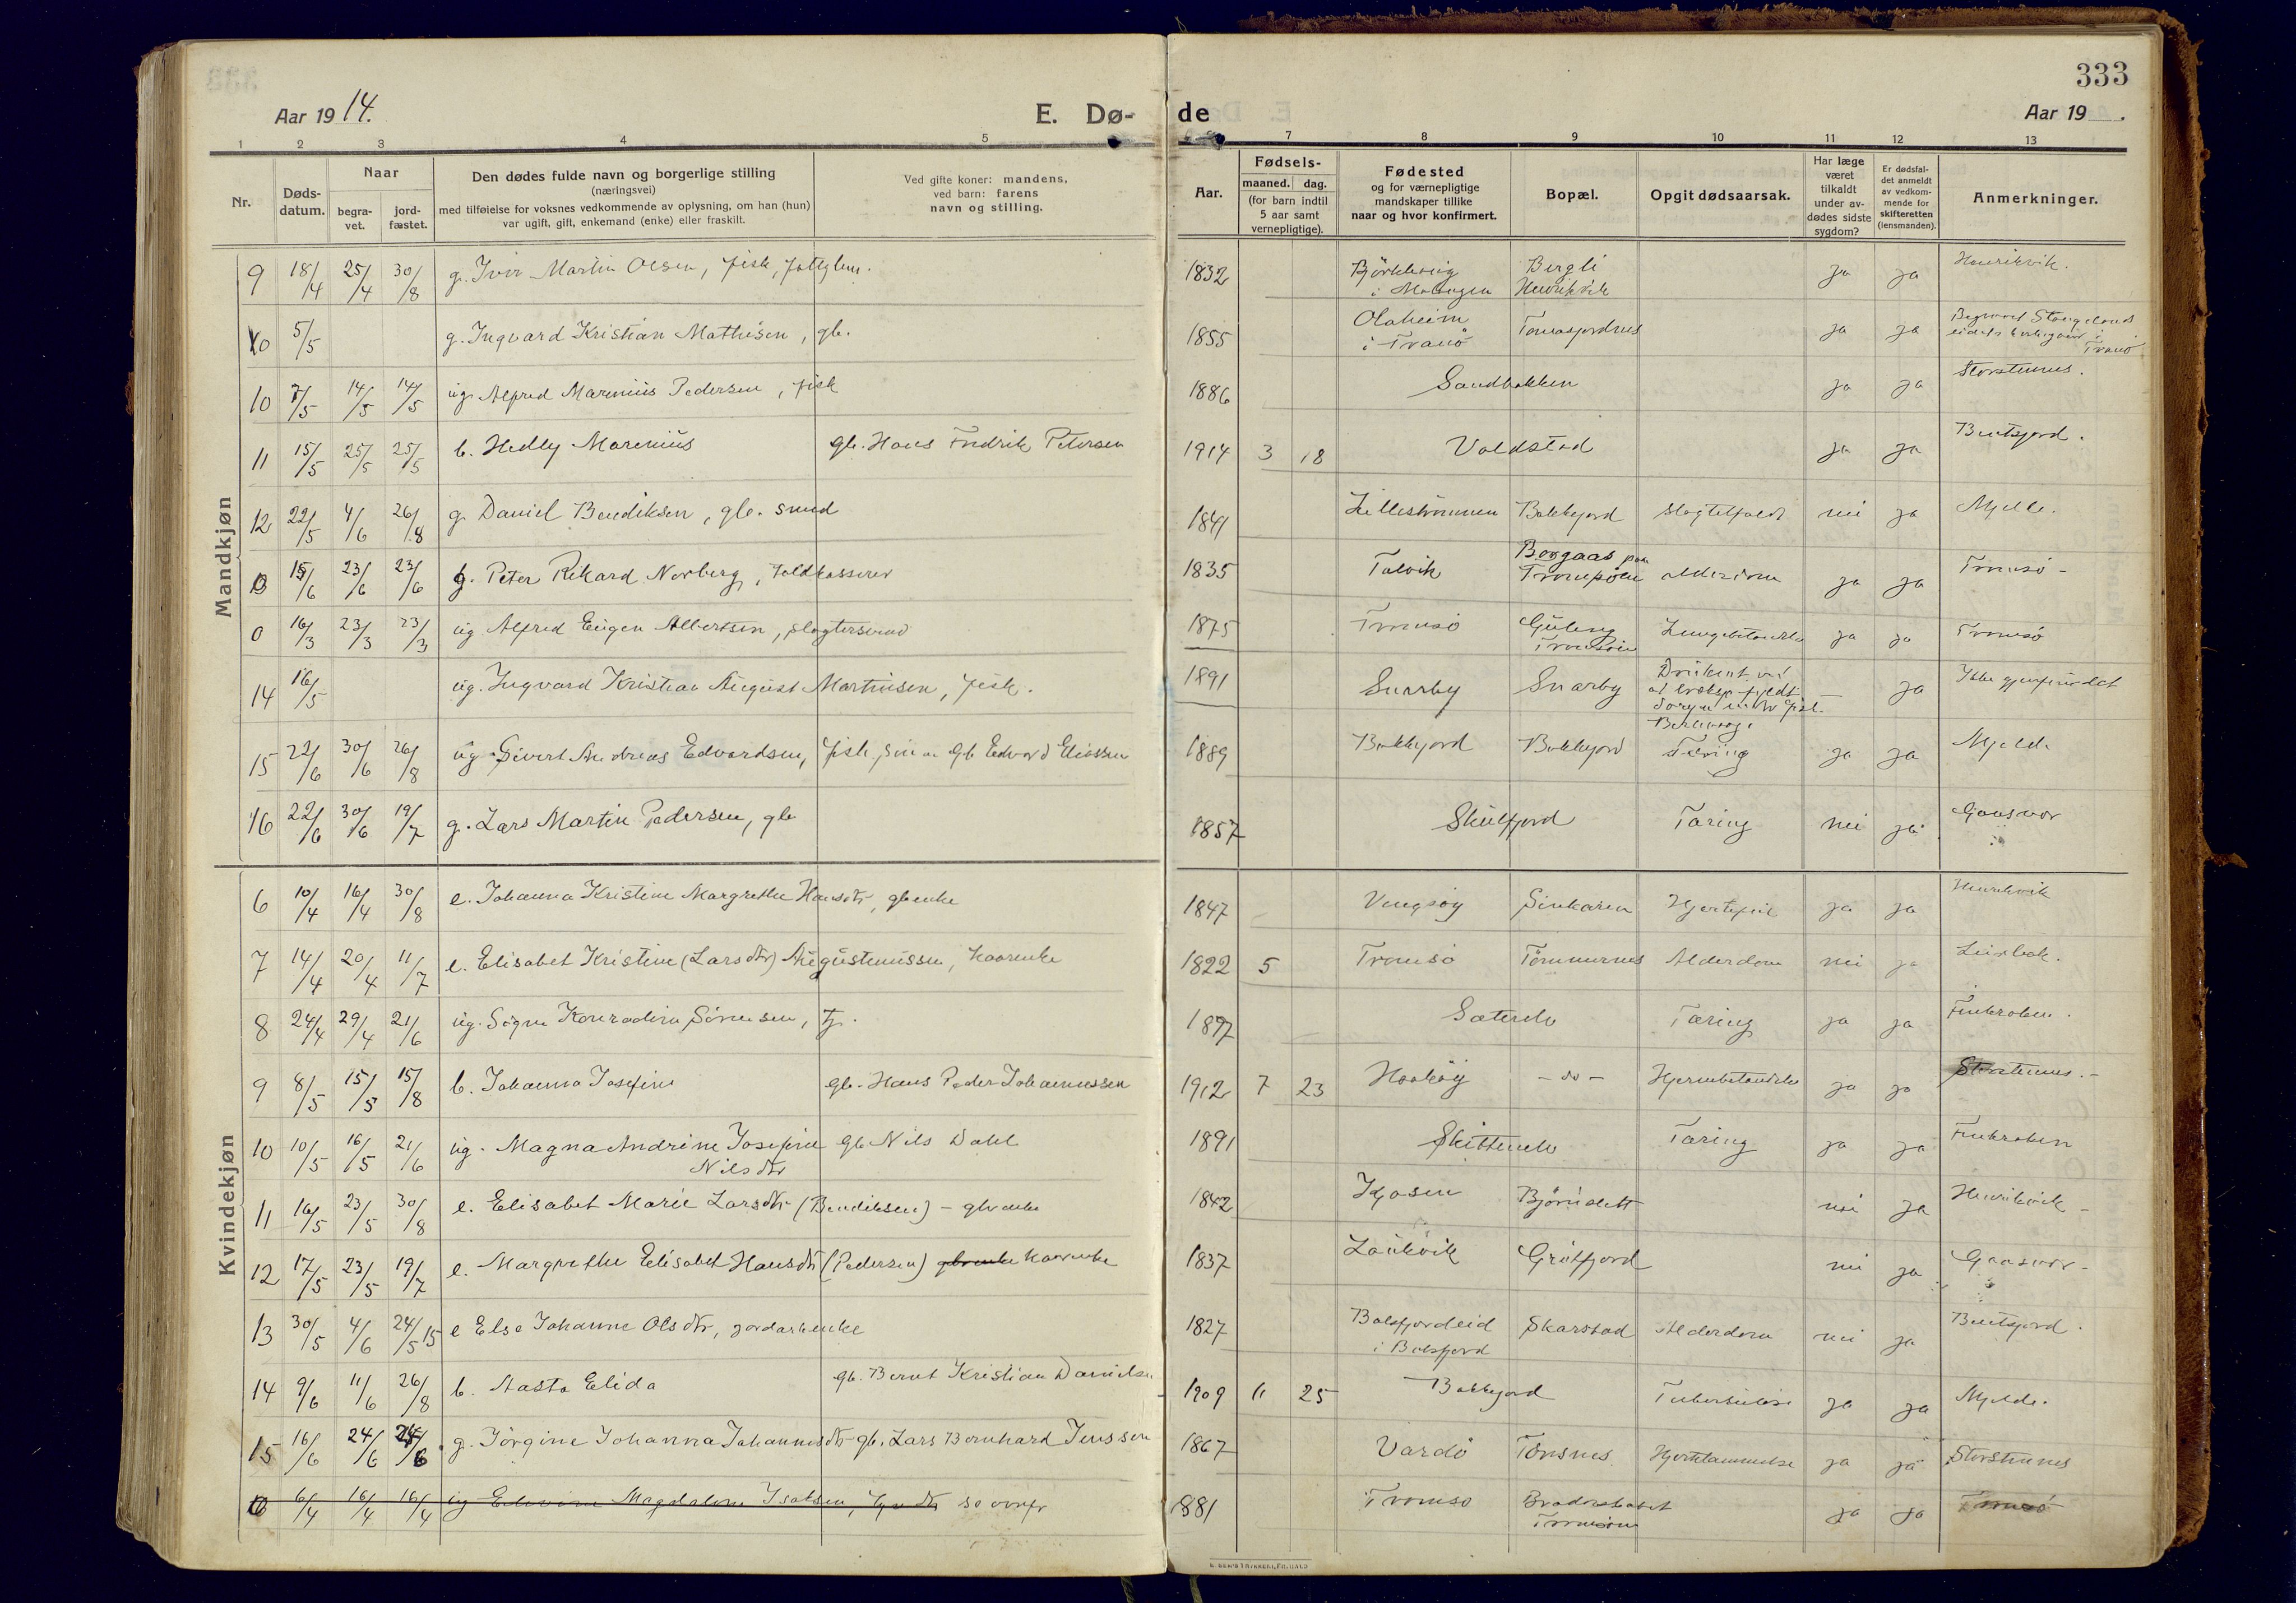 333
Aar 1914.
E. Dø-
de
Aar 19 .
1 2 3 4 5 7 8 9 10 11 12 13
Nr.
Døds-
datum.
Naar
begra-
vet.
jord-
fæstet.
Den dødes fulde navn og borgerlige stilling
(næringsvei)
med tilføielse for voksnes vedkommende av oplysning, om han (hun)
var ugift, gift, enkemand (enke) eller fraskilt.
Ved gifte koner: mandens,
ved barn: farens
navn og stilling.
Aar.
Fødsels-
maaned. dag.
(for barn indtil
5 aar samt
vernepligtige).
Fødested
og for værnepligtige
mandskaper tillike
naar og hvor konfirmert.
Bopæl.
Opgit dødsaarsak.
Har læge
været
tilkaldt
under av-
dødes sidste
sygdom?
Er dødsfal-
det anmeldt
av vedkom-
mende for
skifteretten
(lensmanden).
Anmerkninger.
Mandkjøn
9 18/4 25/4 30/8 g. Iver Martin Olsen, fisk, 1832 i Malangen Bergli Henrikvik ja ja Henrikvik.
0 5/5 g. Ingvard Kristian Mathisen, gb. 1855 Olaheim i Tranö Tomasjordnes ja ja Begravet Stangelands eidets kirkegaard i Tranö
10 7/5 14/5 14/5 ug. Alfred Marenius Pedersen, fisk 1886 Sandbakken ja ja Storstennes.
11 15/5 25/5 25/5 b. Hedly Marenius gb. Hans Fredrik Petersen 1914 3 18 Voldstad ja ja Bentsjord.
12 22/5 4/6 26/8 g. Daniel Bendiksen, gb. smed 1841 Lillestrømmen Bakkejord slagtilfælde nei ja Mjelle.
13 15/6 23/6 23/6 g. Peter Rikard Norberg, Toldkasserer 1835 Talvik Borgaas paa Tromsøen alderdom ja ja Tromsö -
0 16/3 23/3 23/3 ug Alfred Eugen Albertsen, slagtersvend 1875 Tromsö Tromsöen Lungebetændelse ja ja Tromsö
14 16/5 ug. Ingvard Kristian August Martinsen, fisk. 1891 Snarby Snarby Druknet ved - ja Ikke gjenfundet
15 22/6 30/6 26/8 ug. Sivert Andreas Edvardsen, fisk, sön av gb Edvard Eliassen 1889 Bakkejord Bakkejord Tæring ja ja Mjelde
16 22/6 30/6 19/7 g. Lars Martin Pedersen, gb 1857 Skulfjord Tæring nei ja Gaasvær
Kvindekjøn
6 10/4 16/4 30/8 e. Johanna Kristine Margrethe Hansdtr, gbenke 1847 Vengsöy Sinkaren Hjertefeil ja ja Henrikvik
7 14/4 20/4 11/7 e. Elisabet Kristine (Larsdtr) Augustinussen, kaarenke 1822 5 Tromsö Tömmernes Alderdom nei ja
8 24/4 29/4 21/6 ug. Signe Konradine Sörensen, tj. 1897 Sætrelv Tæring ja ja Finkroken.
9 8/5 15/5 15/8 b. Johanna Josefine gb. Hans Peder Johannessen 1912 7 23 Haaköy - do - Hjernebetændelse ja ja Storstennes. -
10 10/5 16/5 21/6 ug. Magna Andrine Josefine Nilsdtr gb Nils Dahl 1891 Skittenelv Tæring ja ja Finkroken
11 16/5 23/5 30/8 e. Elisabet Marie Larsdtr (Bendiksen) - gbenke 1842 Kjosen Björnslett nei ja Henrikvik -
12 17/5 23/5 19/7 e. Margrethe Elisabet Hansdtr (Pedersen) gbrenke kaarenke 1837 Laukvik Grötfjord nei ja Gaasvær -
13 30/5 4/6 24/5 15 e Else Johanne Olsdtr, jordarbenke 1827 Balsfjordeid i Balsfjord Skarstad Alderdom nei ja Bentsjord.
14 9/6 11/6 26/8 b. Aasta Elida gb. Bernt Kristian Danielsen 1909 11 25 Bakkejord Tuberkulose ja ja Mjelde.
15 16/6 24/6 24/6 g. Jörgine Johanna Johannesdtr gb. Lars Bernhard Jenssen 1867 Vardö Tönsnes Hjertelammelse ja ja Storstennes
0 6/4 16/4 16/4 ug Magdalena Isaksen, se ovenfr 1881 Tromsö Tromsöen ja ja Tromsö